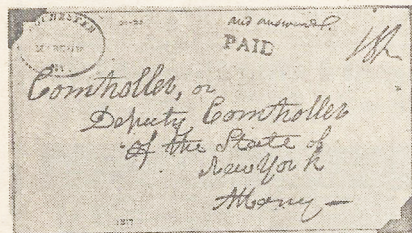 and answered.
PAID
Comtroller, or
Deputy Comtroller
of the State of
New York
Albany —